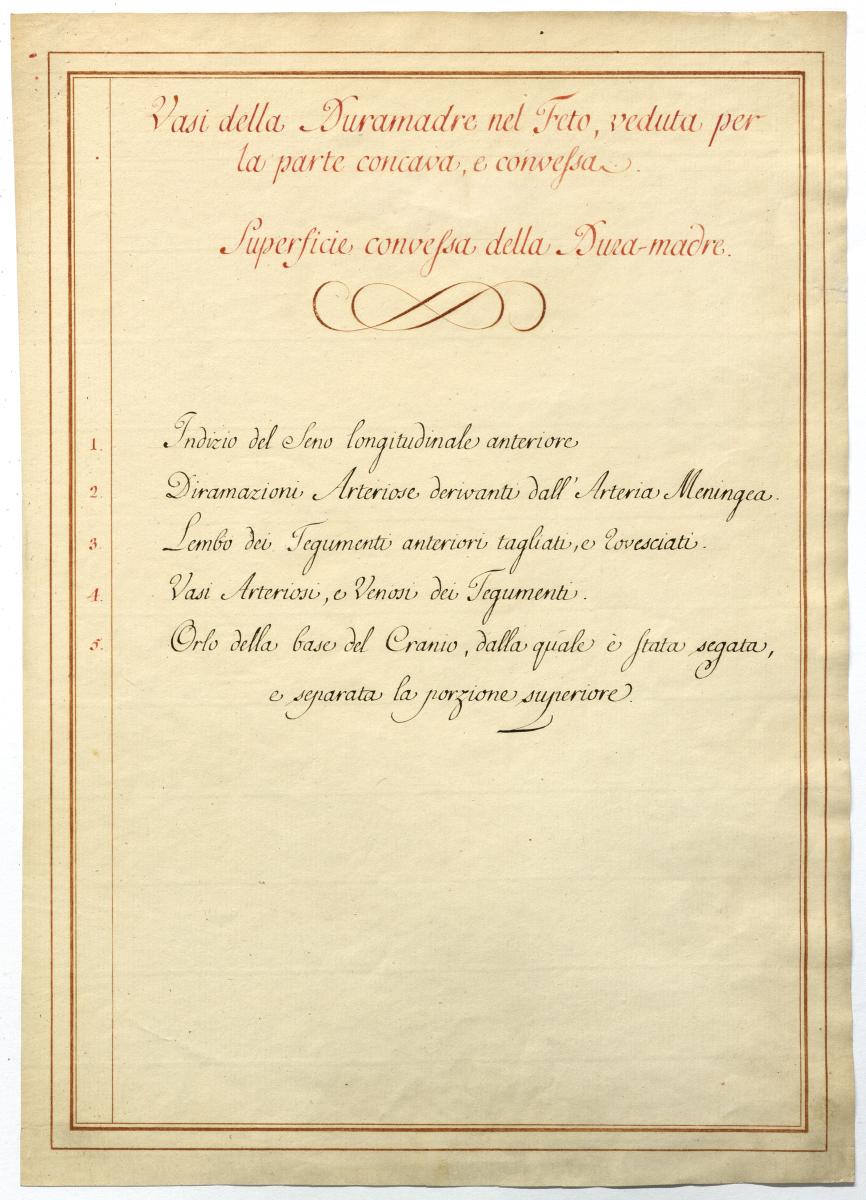 Vasi della Duramadre nel Feto, veduta per
la parte concava, e convessa.
Superficie convessa della Dura-madre.
1. Indizio del Seno longitudinale anteriore
2. Diramazioni Arteriose derivanti dall'Arteria Meningea.
3. Lembo dei Tegumenti anteriori tagliati, e rovesciati.
4. Vasi Arteriosi, e Venosi dei Tegumenti.
5. Orlo della base del Cranio, dalla quale è stata segata,
e separata la porzione superiore.